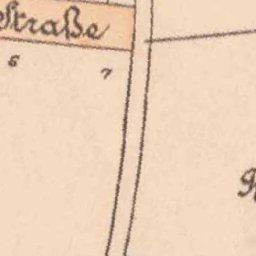 Straße
6 7